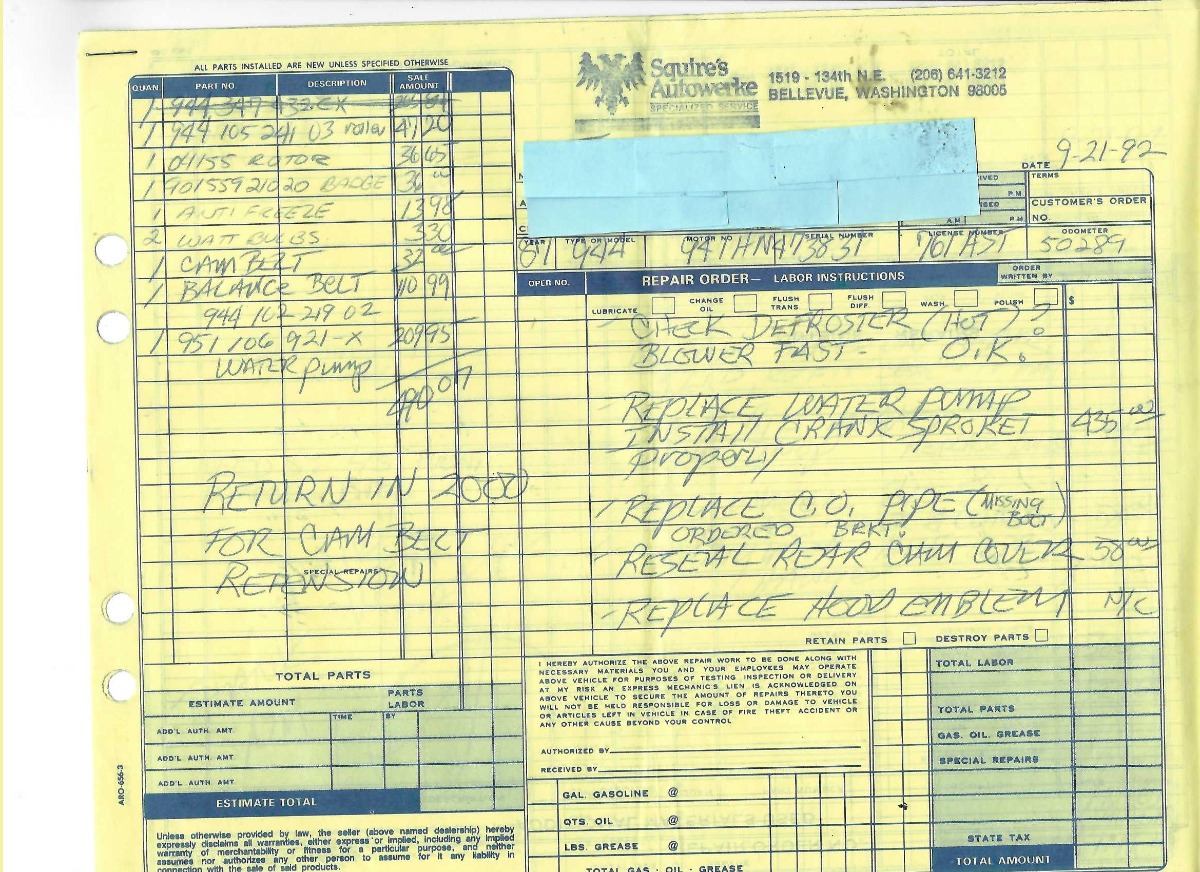 ALL PARTS INSTALLED ARE NEW UNLESS SPECIFIED OTHERWISE
Squire's
Autowerke
SPECIALIZED SERVICE
1519 - 134th N.E. (206) 641-3212
BELLEVUE, WASHINGTON 98005
DATE 9-21-92
QUAN PART NO. DESCRIPTION SALE AMOUNT
1 944 347 433.CX
1 944 105 241 03 roller 47 20
1 04155 ROTOR 36 65
1 90155921020 BADGE 36 00
1 ANTI FREEZE 13 98
2 WATT BULBS 3 30
1 CAM BELT 32 00
1 BALANCE BELT 110 99
944 102 219 02
1 951 106 921-X 209 95
WATER pump
490 07
RETURN IN 2000
FOR CAM BELT
RETENSION
SPECIAL REPAIRS
TERMS
P.M
CUSTOMER'S ORDER NO.
A.M P.M
YEAR TYPE OR MODEL MOTOR NO. SERIAL NUMBER LICENSE NUMBER ODOMETER
87 944 94THN473831 761AST 50289
OPER NO. REPAIR ORDER— LABOR INSTRUCTIONS ORDER WRITTEN BY
LUBRICATE CHANGE OIL FLUSH TRANS FLUSH DIFF. WASH POLISH $
CHECK DEFROSTER (HOT) ?
BLOWER FAST - O.K.
REPLACE WATER PUMP
INSTALL CRANK SPROKET 435 00
properly
- REPLACE C.O. PIPE (MISSING BOLT)
ORDERED BRKT.
- RESEAL REAR CAM COVER 50 00
- REPLACE HOOD EMBLEM N/C
RETAIN PARTS DESTROY PARTS
TOTAL PARTS
ESTIMATE AMOUNT PARTS LABOR
TIME BY
ADD'L AUTH. AMT.
ADD'L AUTH. AMT.
ADD'L AUTH. AMT
ESTIMATE TOTAL
ARO-656-3
Unless otherwise provided by law, the seller (above named dealership) hereby
expressly disclaims all warranties, either express or implied, including any implied
warranty of merchantability or fitness for a particular purpose, and neither
assumes nor authorizes any other person to assume for it any liability in
connection with the sale of said products.
I HEREBY AUTHORIZE THE ABOVE REPAIR WORK TO BE DONE ALONG WITH
NECESSARY MATERIALS YOU AND YOUR EMPLOYEES MAY OPERATE
ABOVE VEHICLE FOR PURPOSES OF TESTING INSPECTION OR DELIVERY
AT MY RISK AN EXPRESS MECHANICS LIEN IS ACKNOWLEDGED ON
ABOVE VEHICLE TO SECURE THE AMOUNT OF REPAIRS THERETO YOU
WILL NOT BE HELD RESPONSIBLE FOR LOSS OR DAMAGE TO VEHICLE
OR ARTICLES LEFT IN VEHICLE IN CASE OF FIRE THEFT ACCIDENT OR
ANY OTHER CAUSE BEYOND YOUR CONTROL
AUTHORIZED BY
RECEIVED BY
GAL. GASOLINE @
QTS. OIL @
LBS. GREASE @
TOTAL GAS - OIL - GREASE
TOTAL LABOR
TOTAL PARTS
GAS. OIL. GREASE
SPECIAL REPAIRS
STATE TAX
TOTAL AMOUNT